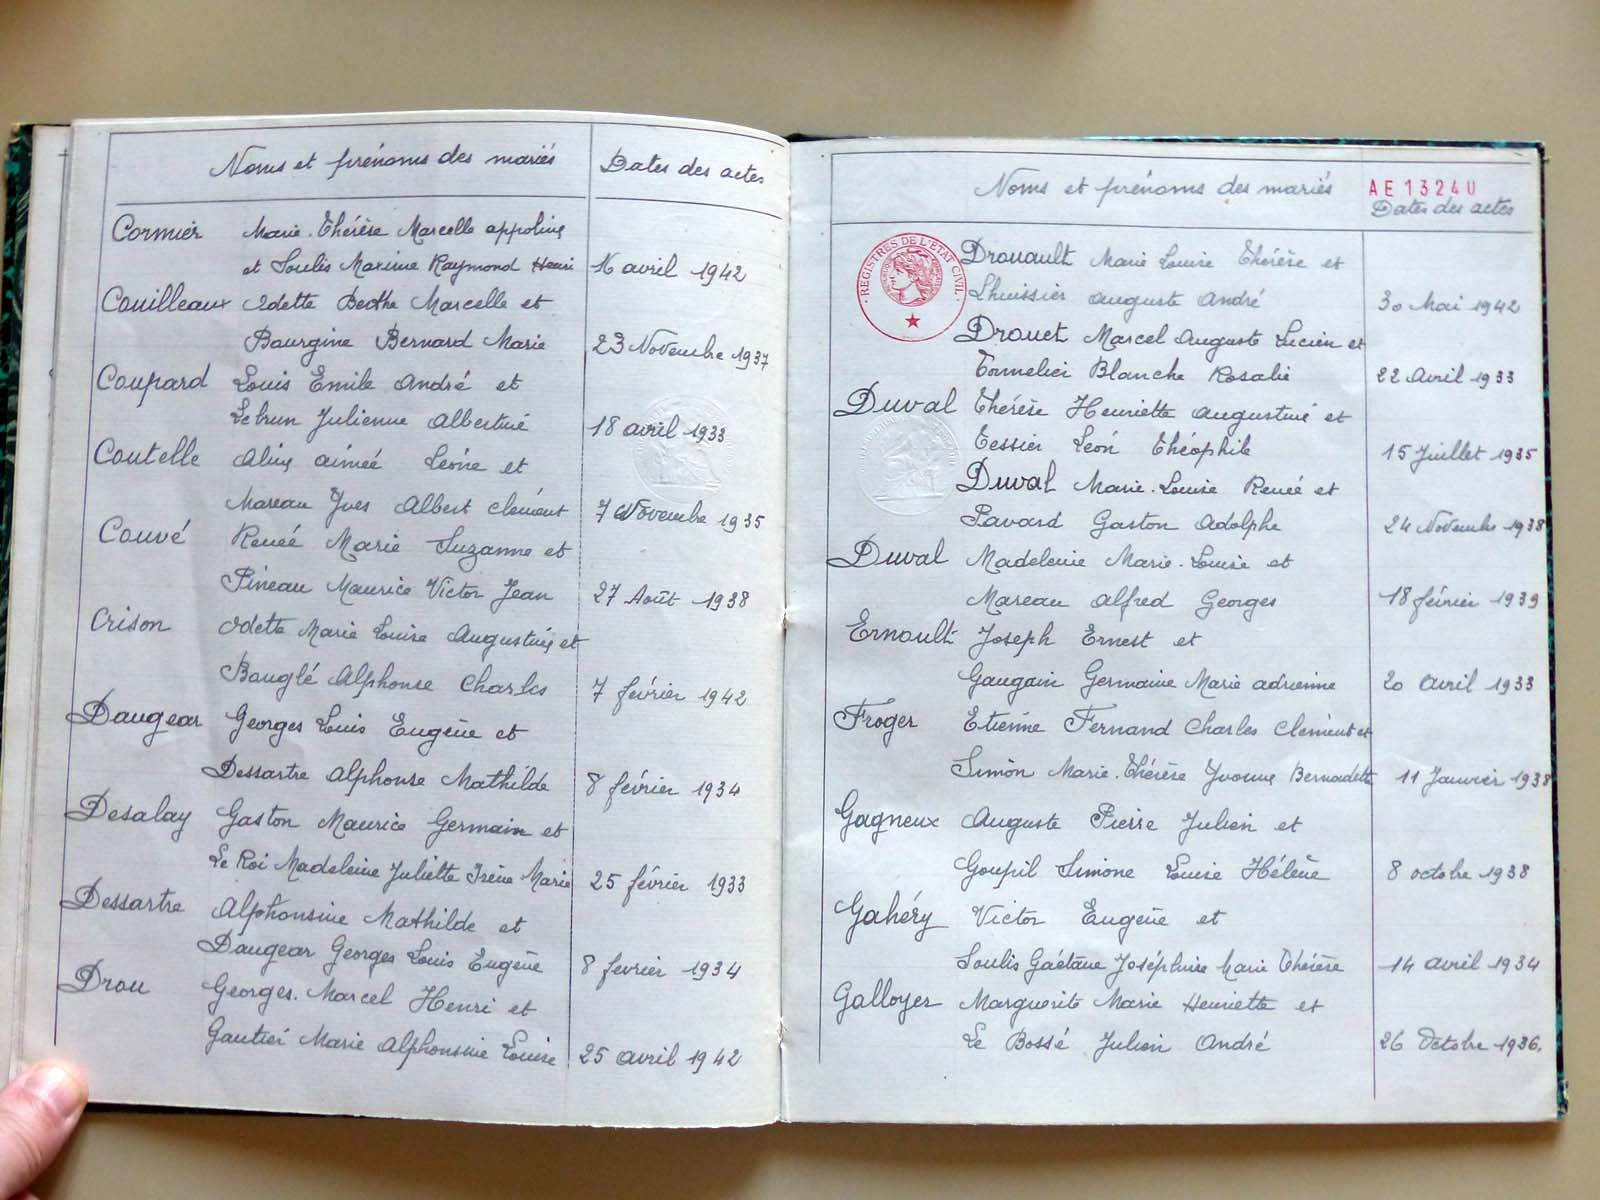 Noms et prénoms des mariés
Dates des actes
Cormier Marie-Thérèse Marcelle
et Soulis Maxime Raymond Henri 16 avril 1942
Couilleaux Odette Berthe Marcelle et
Bourgine Bernard Marie 23 Novembre 1937
Coupard Louis Emile André et
Lebrun Julienne Albertine 18 avril 1933
Coutelle Aline aimée Léone et
Mareau Yves Albert clément 7 Novembre 1935
Couvé Renée Marie Suzanne et
Pineau Maurice Victor Jean 27 Août 1938
Crison Odette Marie Louise Augustine et
Bouglé Alphonse Charles 7 février 1942
Daugear Georges Louis Eugène et
Dessartre Alphonse Mathilde 8 février 1934
Desalay Gaston Maurice Germain et
Le Roi Madeleine Juliette Irène Marie 25 février 1933
Dessartre Alphonsine Mathilde et
Daugear Georges Louis Eugène 8 fevrier 1934
Drou Georges. Marcel Henri et
Gautier Marie Alphonsine Louise 25 avril 1942
Noms et prénoms des mariés
AE 13240
Dates des actes
REGISTRES DE L'ETAT CIVIL
Drouault Marie Louise Thérèse et
Lhuissier auguste André 30 Mai 1942
Drouet Marcel Auguste Lucien et
Tonnelier Blanche Rosalie 22 Avril 1933
Duval Thérèse Henriette augustine et
Tessier Léon Théophile 15 Juillet 1935
Duval Marie-Louise Renée et
Pavard Gaston Adolphe 24 Novembre 1938
Duval Madeleine Marie-Louise et
Mareau Alfred Georges 18 février 1939
Ernoult Joseph Ernest et
Gaugain Germaine Marie adrienne 20 avril 1933
Froger Etienne Fernand Charles Clément et
Simon Marie-Thérèse Yvonne Bernadette 11 Janvier 1938
Gagneux Auguste Pierre Julien et
Goupil Simone Louise Hélène 8 octobre 1938
Gahéry Victor Eugène et
Soulis Gaétane Joséphine Marie Thérèse 14 avril 1934
Galloyer Marguerite Marie Henriette et
Le Bossé Julien André 26 Octobre 1936.